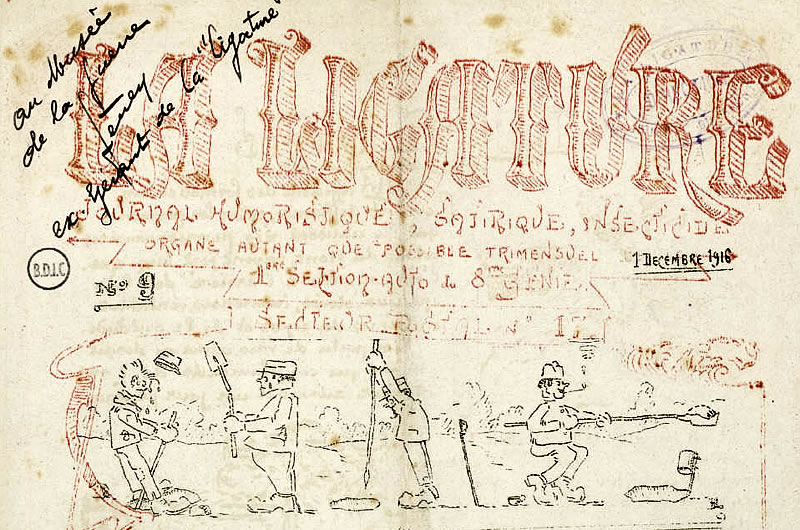 au Musée
de la Guerre
ex gérant de la "Ligature"
LA LIGATURE
JOURNAL HUMORISTIQUE, SATIRIQUE, INSECTICIDE
ORGANE AUTANT QUE POSSIBLE TRIMENSUEL
1 DECEMBRE 1916
1ère SECTION-AUTO du 8ème GÉNIE
B.D.I.C
No 9
SECTEUR POSTAL No 17